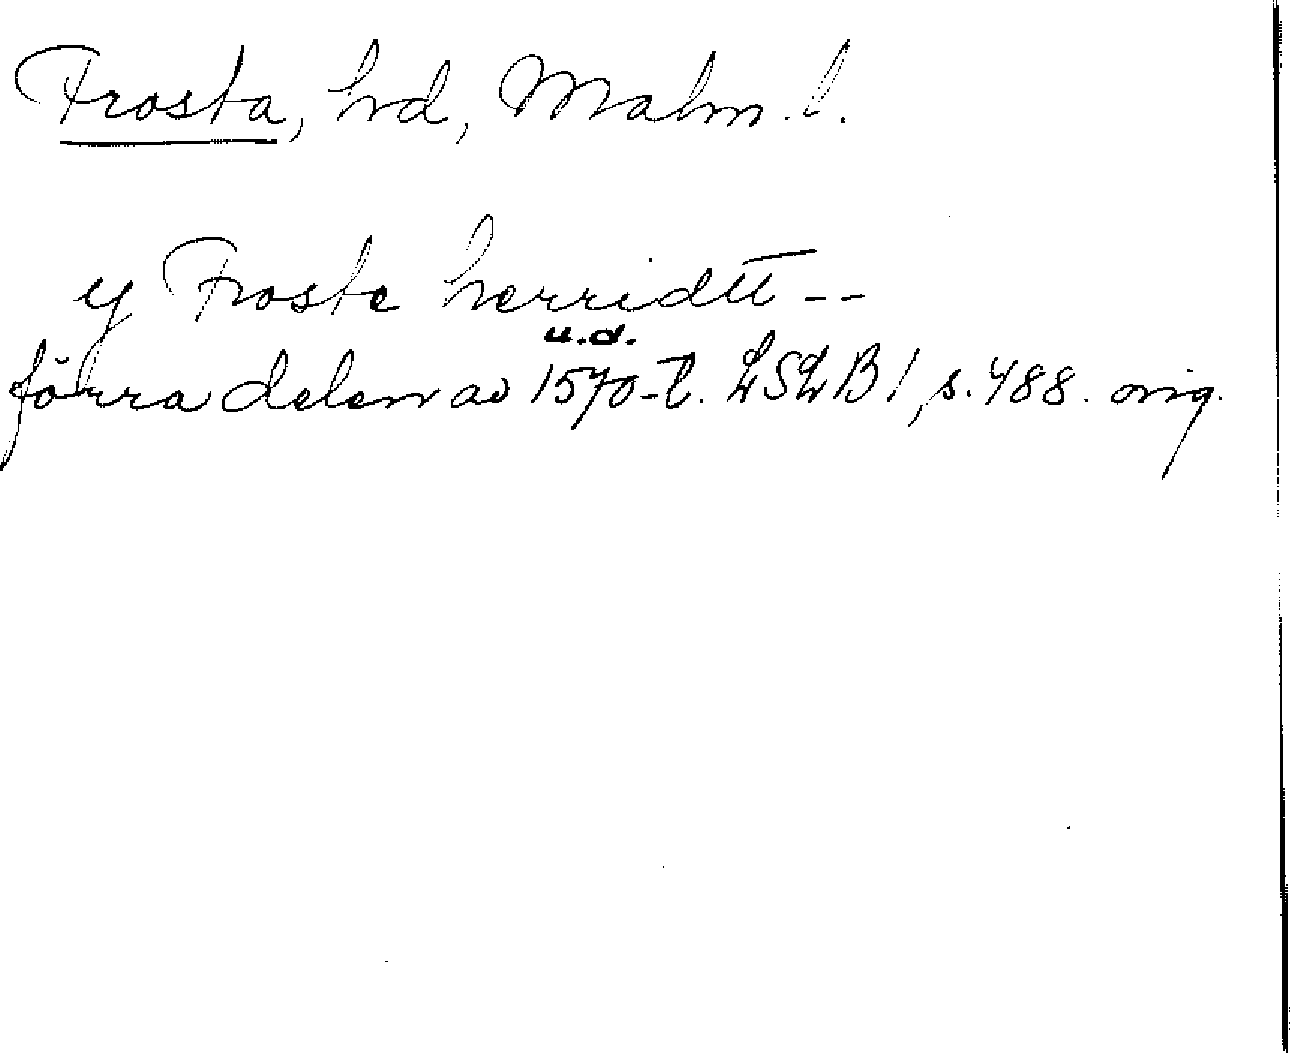 Frosta, hd, Malm. l.
y Froste herridtt --
u.d.
förra delen av 1570-t. LSLB 1, s. 488. orig.